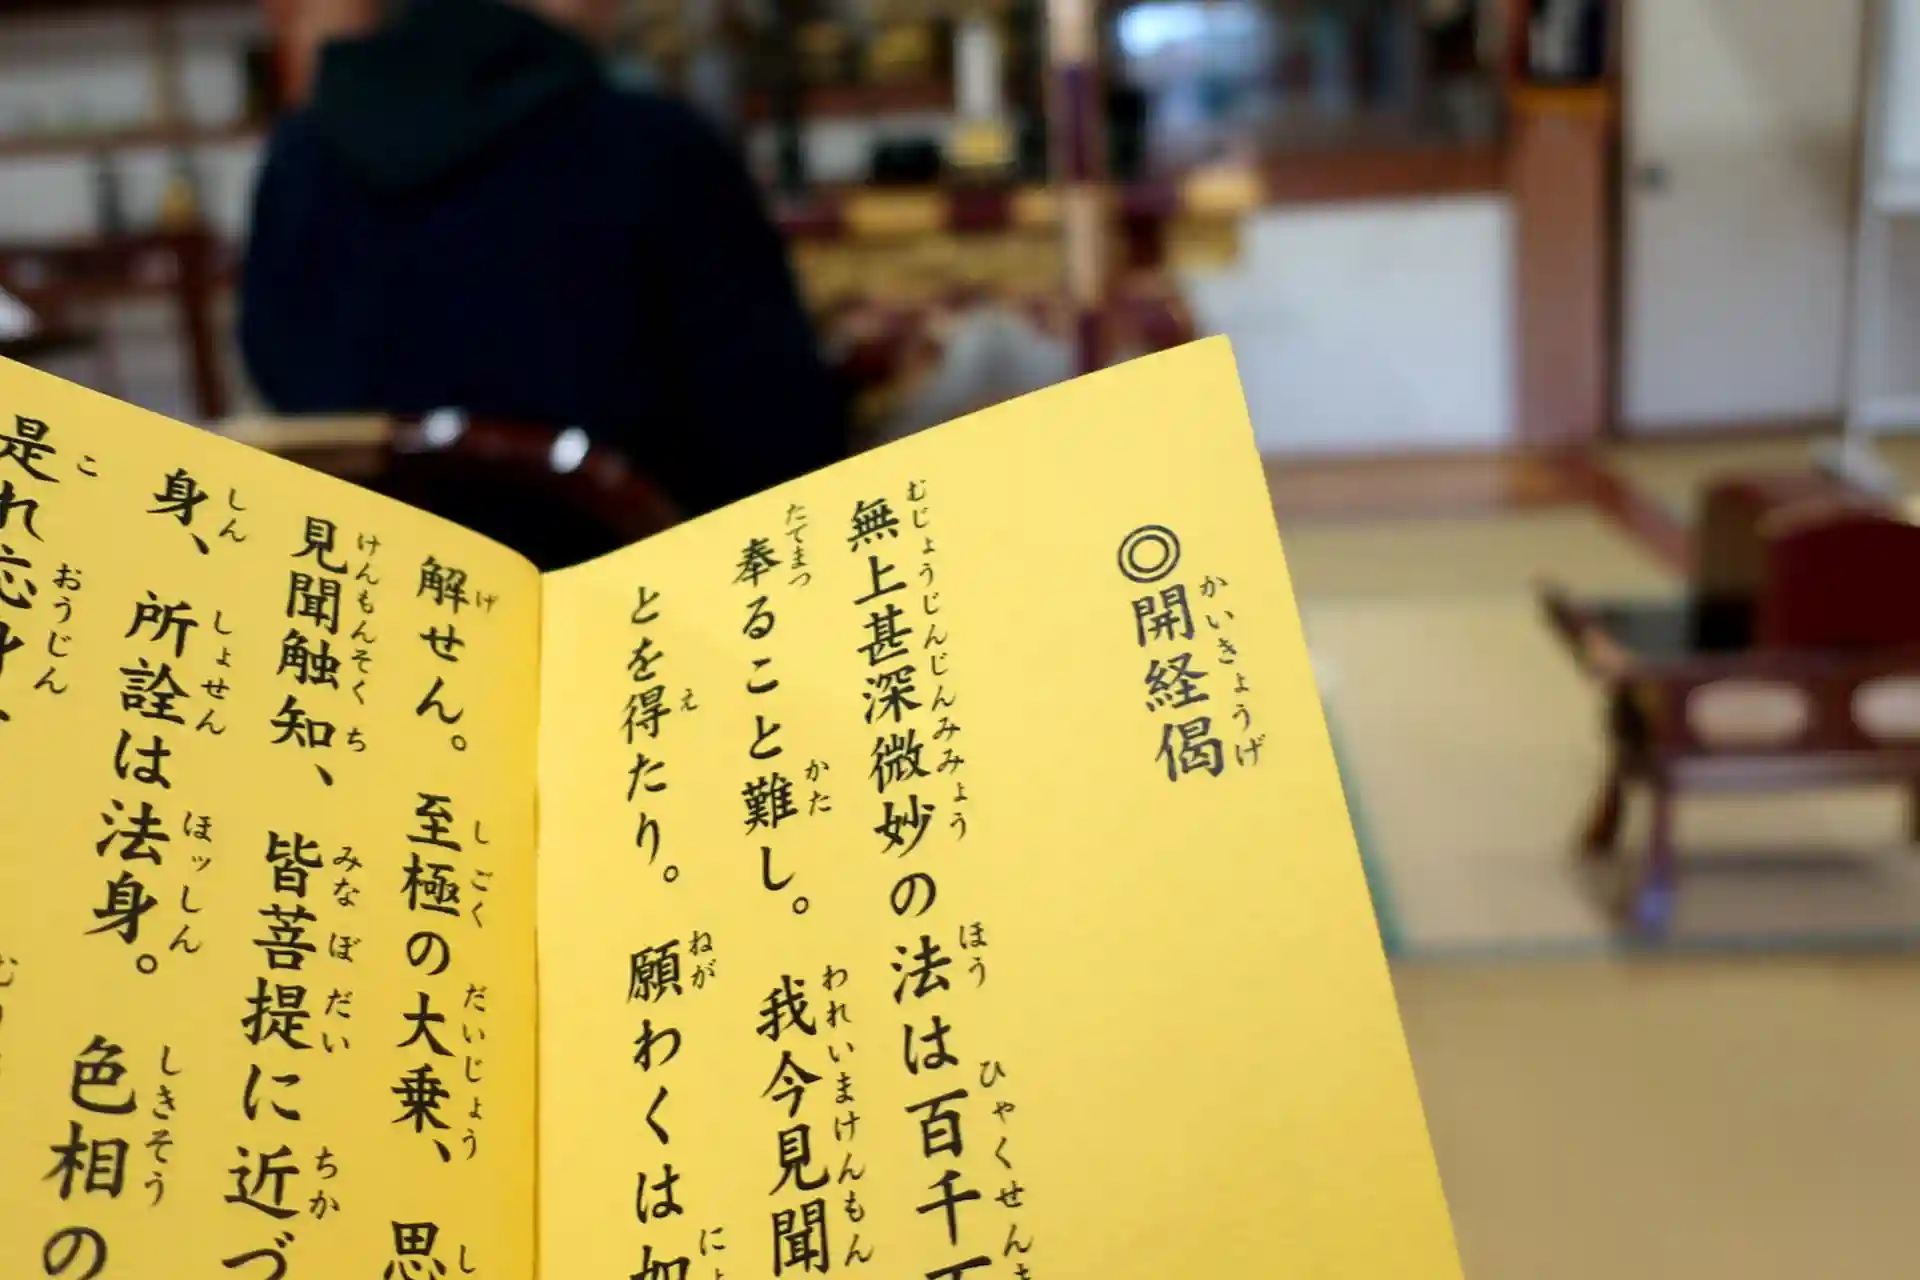 ◎開経偈
かいきょうげ
無上甚深微妙の法は百千
むじょうじんじんみみょう ほう ひゃくせん
奉ること難し。我今見聞
たてまつ かた われいまけんもん
とを得たり。願わくは如
え ねが
解せん。至極の大乗、思
げ しごく だいじょう し
見聞触知、皆菩提に近づ
けんもんそくち みな ぼだい ちか
身、所詮は法身。色相の
しん しょせん ほッしん しきそう
是れ応身、
こ おうじん